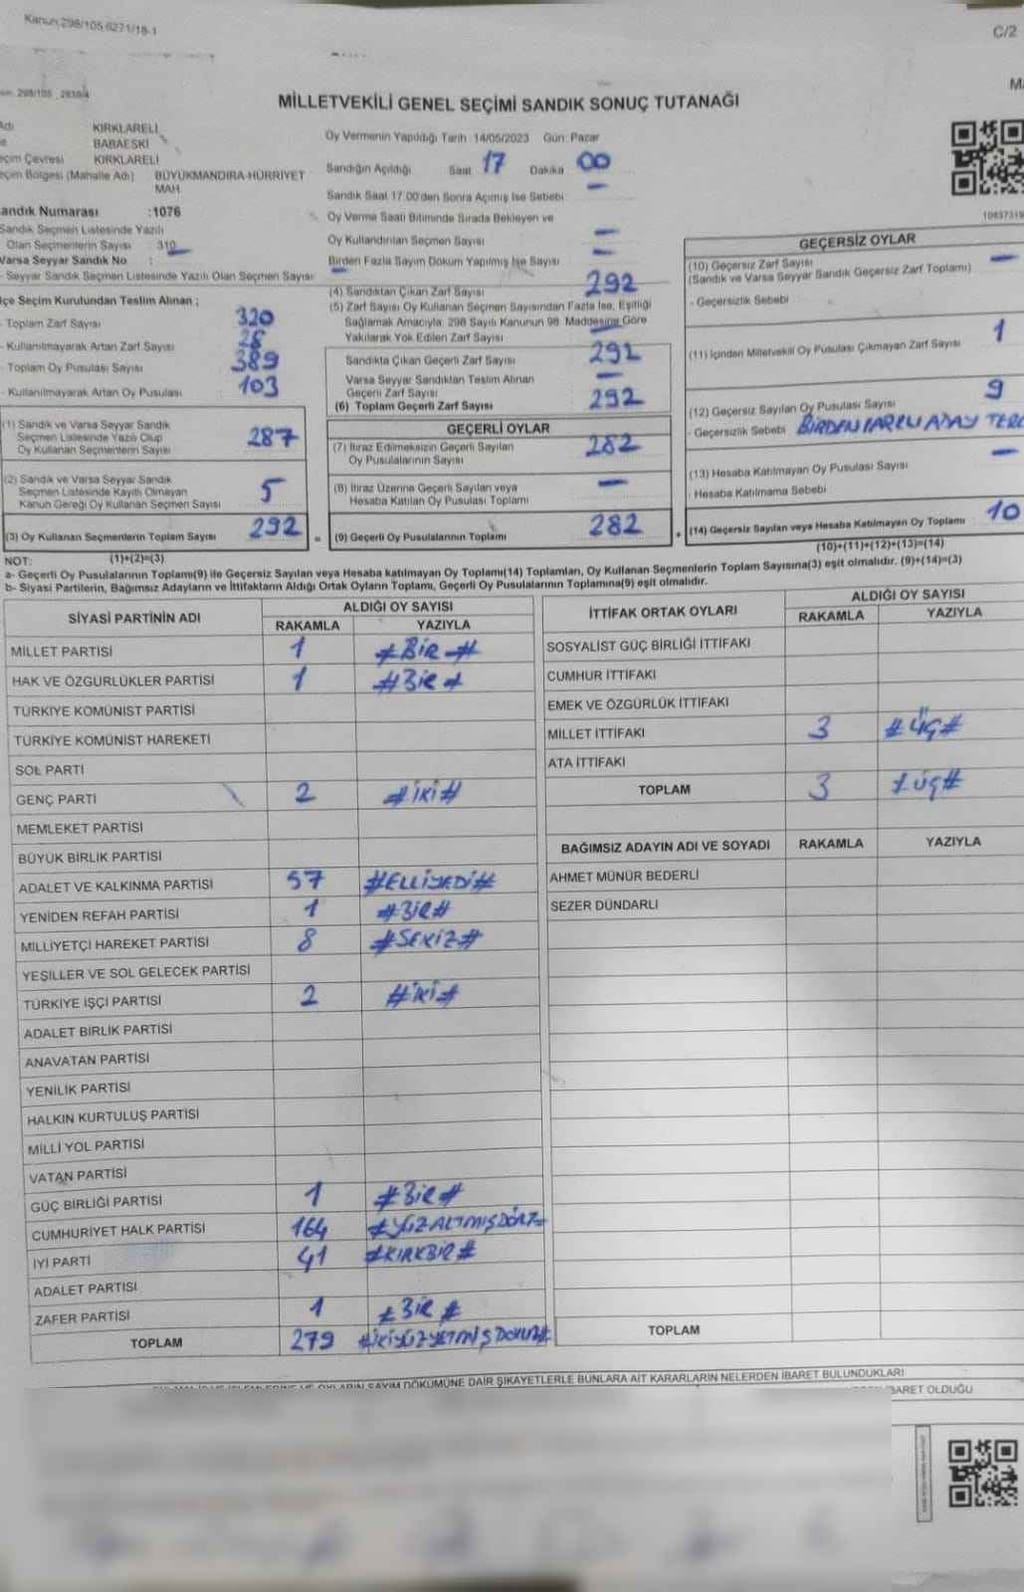 Kanun 298/105 6271/18-1
C/2
298/105 2839/4
MİLLETVEKİLİ GENEL SEÇİMİ SANDIK SONUÇ TUTANAĞI
KIRKLARELİ
BABAESKİ
Çevresi KIRKLARELİ
Bölgesi (Mahalle Adı) BÜYÜKMANDIRA-HÜRRİYET
MAH.
Sandık Numarası :1076
Sandık Seçmen Listesinde Yazılı
Olan Seçmenlerin Sayısı 310
Varsa Seyyar Sandık No :
- Seyyar Sandık Seçmen Listesinde Yazılı Olan Seçmen Sayısı
İlçe Seçim Kurulundan Teslim Alınan ;
- Toplam Zarf Sayısı 320
- Kullanılmayarak Artan Zarf Sayısı 28
- Toplam Oy Pusulası Sayısı 389
- Kullanılmayarak Artan Oy Pusulası 103
(1) Sandık ve Varsa Seyyar Sandık
Seçmen Listesinde Yazılı Olup
Oy Kullanan Seçmenlerin Sayısı 287
(2) Sandık ve Varsa Seyyar Sandık
Seçmen Listesinde Kayıtlı Olmayan
Kanun Gereği Oy Kullanan Seçmen Sayısı 5
(3) Oy Kullanan Seçmenlerin Toplam Sayısı 292
Oy Vermenin Yapıldığı Tarih 14/05/2023 Gün: Pazar
Sandığın Açıldığı Saat 17 Dakika 00
Sandık Saat 17.00'den Sonra Açılmış İse Sebebi –
Oy Verme Saati Bitiminde Sırada Bekleyen ve
Oy Kullandırılan Seçmen Sayısı –
Birden Fazla Sayım Döküm Yapılmış İse Sayısı –
(4) Sandıktan Çıkan Zarf Sayısı 292
(5) Zarf Sayısı Oy Kullanan Seçmen Sayısından Fazla İse, Eşitliği
Sağlamak Amacıyla; 298 Sayılı Kanunun 98. Maddesine Göre
Yakılarak Yok Edilen Zarf Sayısı –
Sandıkta Çıkan Geçerli Zarf Sayısı 292
Varsa Seyyar Sandıktan Teslim Alınan
Geçerli Zarf Sayısı –
(6) Toplam Geçerli Zarf Sayısı 292
GEÇERLİ OYLAR
(7) İtiraz Edilmeksizin Geçerli Sayılan
Oy Pusulalarının Sayısı 282
(8) İtiraz Üzerine Geçerli Sayılan veya
Hesaba Katılan Oy Pusulası Toplamı –
= (9) Geçerli Oy Pusulalarının Toplamı 282
GEÇERSİZ OYLAR
(10) Geçersiz Zarf Sayısı –
(Sandık ve Varsa Seyyar Sandık Geçersiz Zarf Toplamı)
- Geçersizlik Sebebi
(11) İçinden Milletvekili Oy Pusulası Çıkmayan Zarf Sayısı 1
(12) Geçersiz Sayılan Oy Pusulası Sayısı 9
- Geçersizlik Sebebi BİRDEN FAZLA ADAY TERC
(13) Hesaba Katılmayan Oy Pusulası Sayısı –
- Hesaba Katılmama Sebebi
+ (14) Geçersiz Sayılan veya Hesaba Katılmayan Oy Toplamı 10
NOT: (1)+(2)=(3) (10)+(11)+(12)+(13)=(14)
a- Geçerli Oy Pusulalarının Toplamı(9) ile Geçersiz Sayılan veya Hesaba katılmayan Oy Toplamı(14) Toplamları, Oy Kullanan Seçmenlerin Toplam Sayısına(3) eşit olmalıdır. (9)+(14)=(3)
b- Siyasi Partilerin, Bağımsız Adayların ve İttifakların Aldığı Ortak Oyların Toplamı, Geçerli Oy Pusulalarının Toplamına(9) eşit olmalıdır.
SİYASİ PARTİNİN ADI ALDIĞI OY SAYISI
RAKAMLA YAZIYLA
MİLLET PARTİSİ 1 #BİR#
HAK VE ÖZGÜRLÜKLER PARTİSİ 1 #BİR#
TÜRKİYE KOMÜNİST PARTİSİ
TÜRKİYE KOMÜNİST HAREKETİ
SOL PARTİ
GENÇ PARTİ 2 #İKİ#
MEMLEKET PARTİSİ
BÜYÜK BİRLİK PARTİSİ
ADALET VE KALKINMA PARTİSİ 57 #ELLİYEDİ#
YENİDEN REFAH PARTİSİ 1 #BİR#
MİLLİYETÇİ HAREKET PARTİSİ 8 #SEKİZ#
YEŞİLLER VE SOL GELECEK PARTİSİ
TÜRKİYE İŞÇİ PARTİSİ 2 #İKİ#
ADALET BİRLİK PARTİSİ
ANAVATAN PARTİSİ
YENİLİK PARTİSİ
HALKIN KURTULUŞ PARTİSİ
MİLLİ YOL PARTİSİ
VATAN PARTİSİ
GÜÇ BİRLİĞİ PARTİSİ 1 #BİR#
CUMHURİYET HALK PARTİSİ 164 #YÜZALTMIŞDÖRT#
İYİ PARTİ 41 #KIRKBİR#
ADALET PARTİSİ
ZAFER PARTİSİ 1 #BİR#
TOPLAM 279 #İKİYÜZYETMİŞDOKUZ#
İTTİFAK ORTAK OYLARI ALDIĞI OY SAYISI
RAKAMLA YAZIYLA
SOSYALİST GÜÇ BİRLİĞİ İTTİFAKI
CUMHUR İTTİFAKI
EMEK VE ÖZGÜRLÜK İTTİFAKI
MİLLET İTTİFAKI 3 #ÜÇ#
ATA İTTİFAKI
TOPLAM 3 #ÜÇ#
BAĞIMSIZ ADAYIN ADI VE SOYADI RAKAMLA YAZIYLA
AHMET MÜNÜR BEDERLİ
SEZER DÜNDARLI
TOPLAM
SAYIM DÖKÜMÜNE DAİR ŞİKAYETLERLE BUNLARA AİT KARARLARIN NELERDEN İBARET BULUNDUKLARI
İBARET OLDUĞU